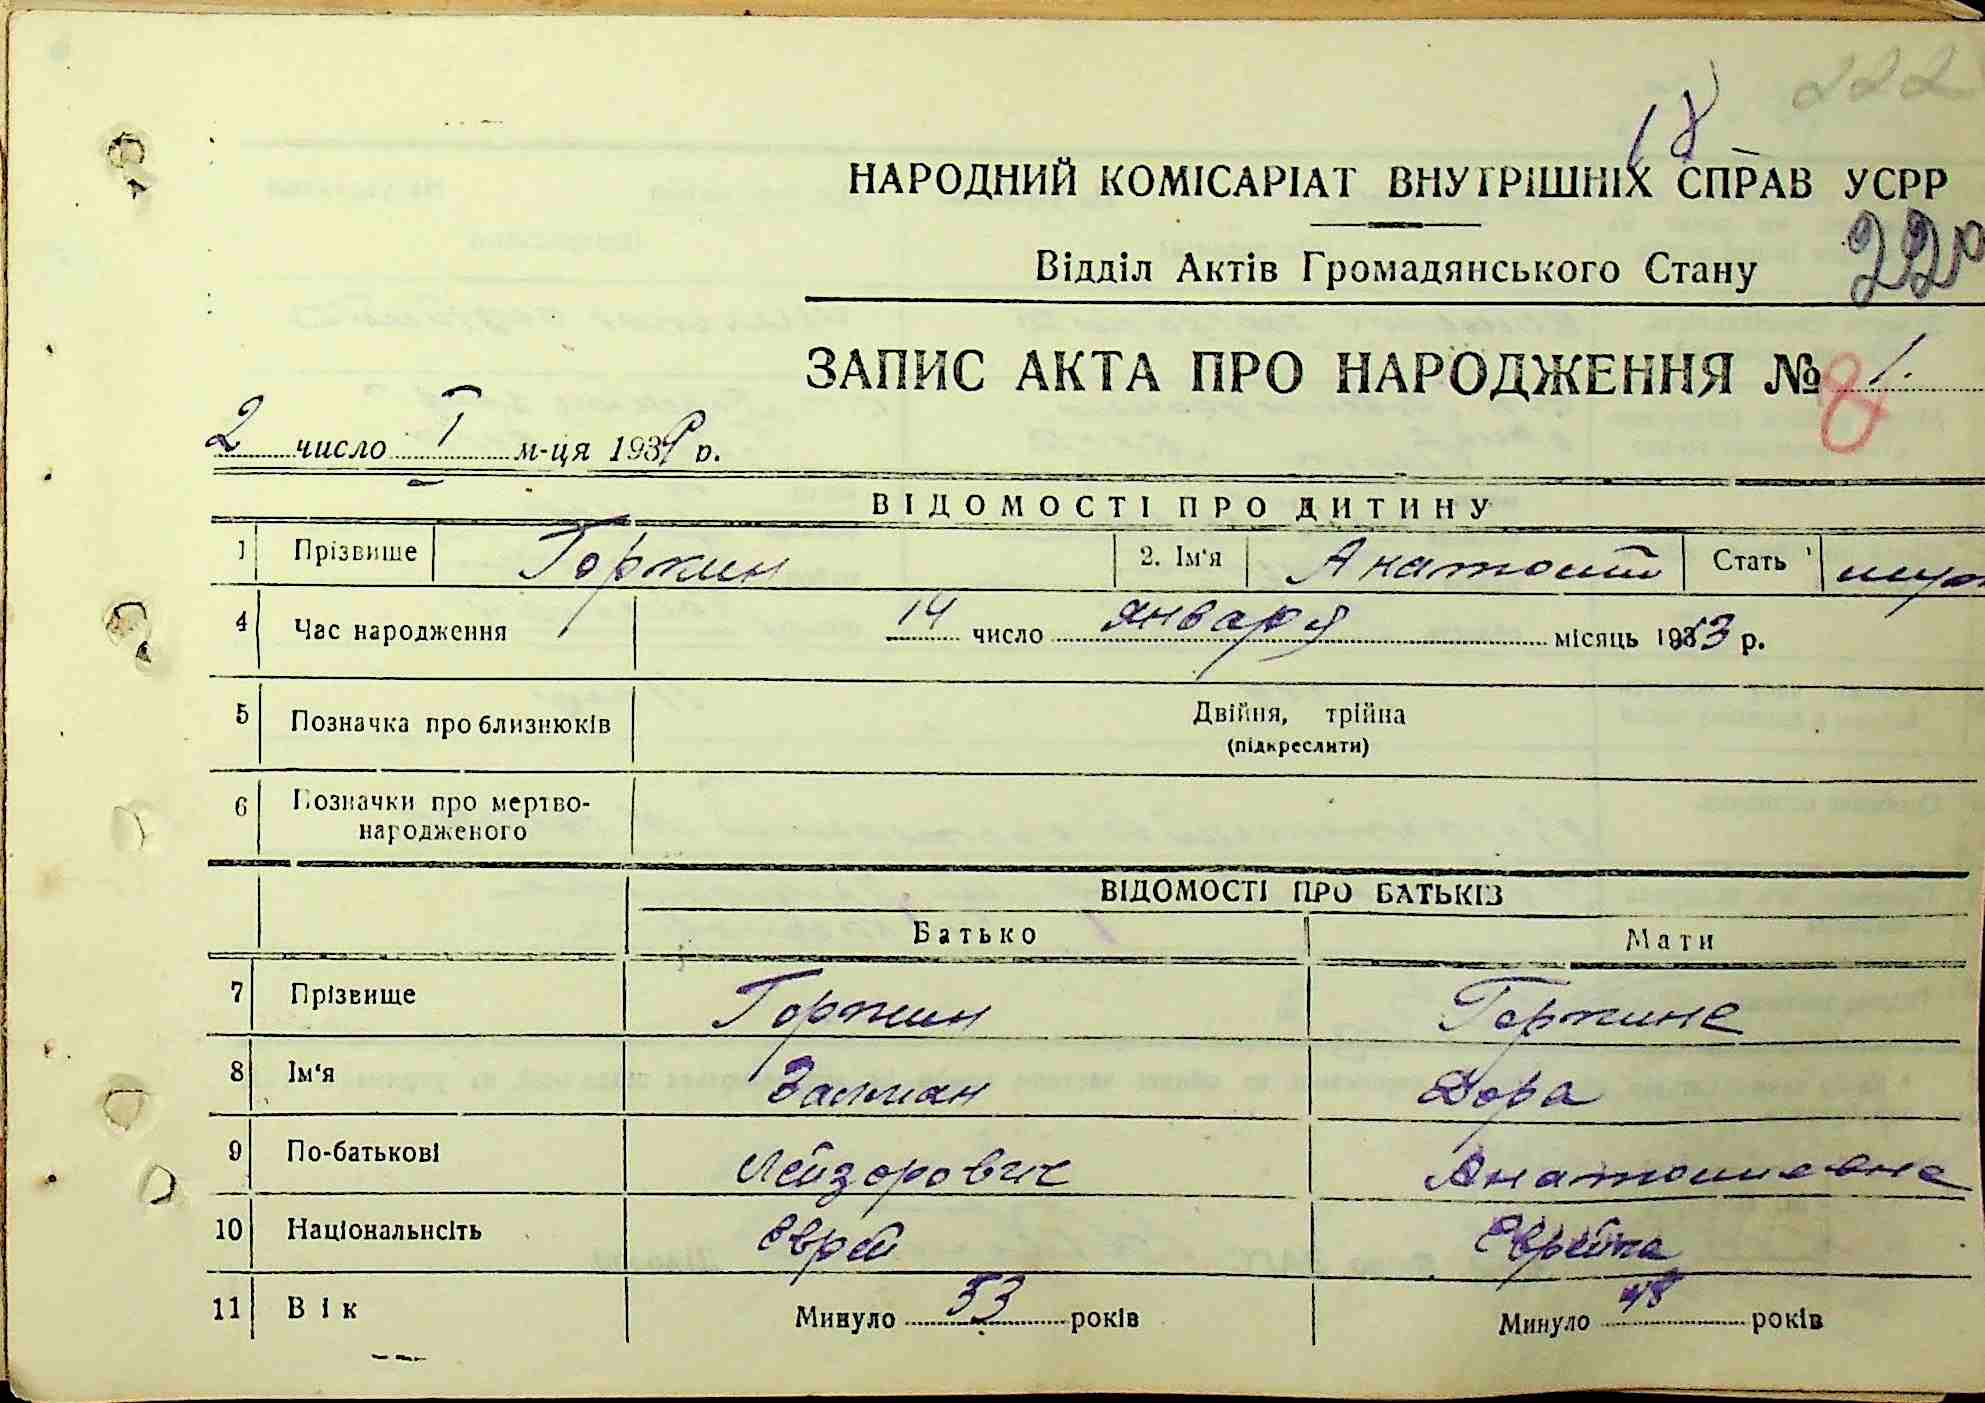 222
18
НАРОДНИЙ КОМІСАРІАТ ВНУТРІШНІХ СПРАВ УСРР
Відділ Актів Громадянського Стану
ЗАПИС АКТА ПРО НАРОДЖЕННЯ № 1.
8
2 число I м-ця 1939 р.
ВІДОМОСТІ ПРО ДИТИНУ
1 Прізвище Горжин 2. Ім'я Анатолий Стать муж
4 Час народження 14 число января місяць 1913 р.
5 Позначка про близнюків Двійня, трійна
(підкреслити)
6 Позначки про мертво-
народженого
ВІДОМОСТІ ПРО БАТЬКІВ
Батько Мати
7 Прізвище Горжин Горжина
8 Ім'я Залман Дора
9 По-батькові Лейзорович Анатолиевна
10 Національнсіть еврей Еврейка
11 Вік Минуло 53 років Минуло 48 років